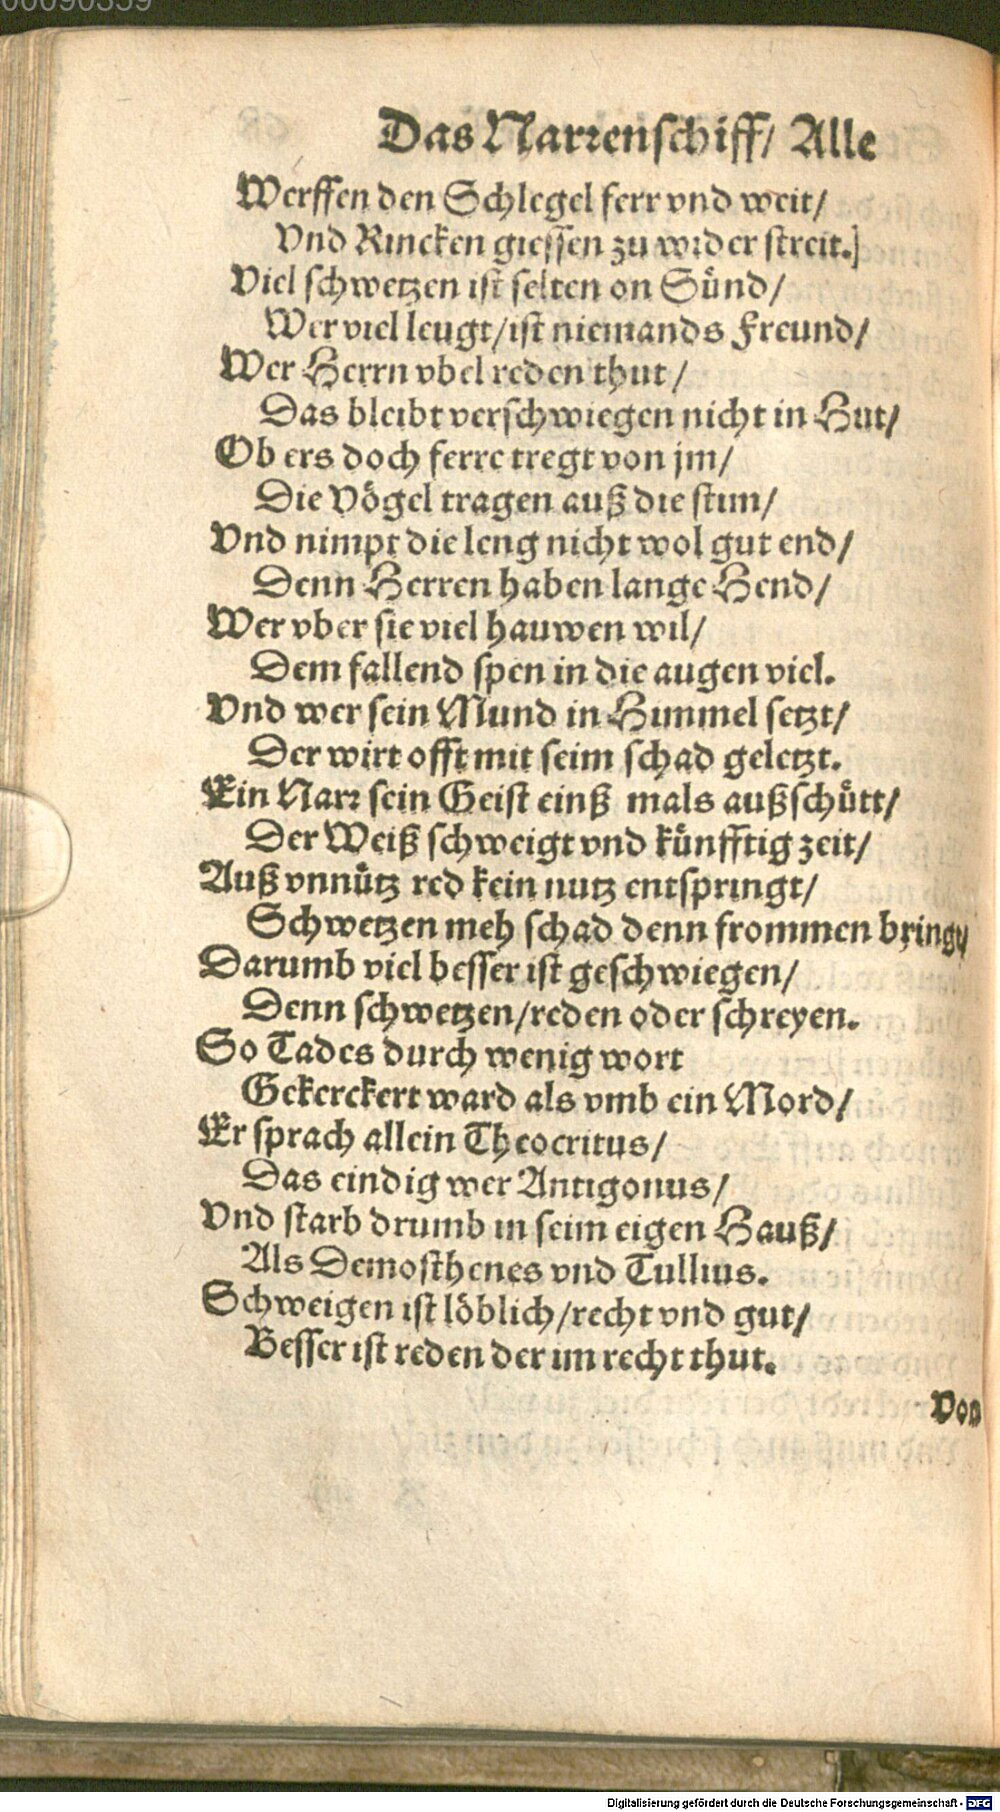 00090359
Das Narrenschiff/ Alle
Werffen den Schlegel ferr vnd weit/
Vnd Rincken giessen zu wider streit.]
Viel schwetzen ist selten on Sünd/
Wer viel leugt/ist niemands Freund/
Wer Herrn vbel reden thut/
Das bleibt verschwiegen nicht in Hut/
Ob ers doch ferre tregt von jm/
Die Vögel tragen auß die stim/
Vnd nimpt die leng nicht wol gut end/
Denn Herren haben lange Hend/
Wer vber sie viel hauwen wil/
Dem fallend spen in die augen viel.
Vnd wer sein Mund in Himmel setzt/
Der wirt offt mit seim schad geletzt.
Ein Narr sein Geist einß mals außschütt/
Der Weiß schweigt vnd künfftig zeit/
Auß vnnütz red kein nutz entspringt/
Schwetzen meh schad denn frommen bringt/
Darumb viel besser ist geschwiegen/
Denn schwetzen/reden oder schreyen.
So Tades durch wenig wort
Gekerckert ward als vmb ein Mord/
Er sprach allein Theocritus/
Das eindig wer Antigonus/
Vnd starb drumb in seim eigen Hauß/
Als Demosthenes vnd Tullius.
Schweigen ist löblich/recht vnd gut/
Besser ist reden der im recht thut.
Von
Digitalisierung gefördert durch die Deutsche Forschungsgemeinschaft - DFG